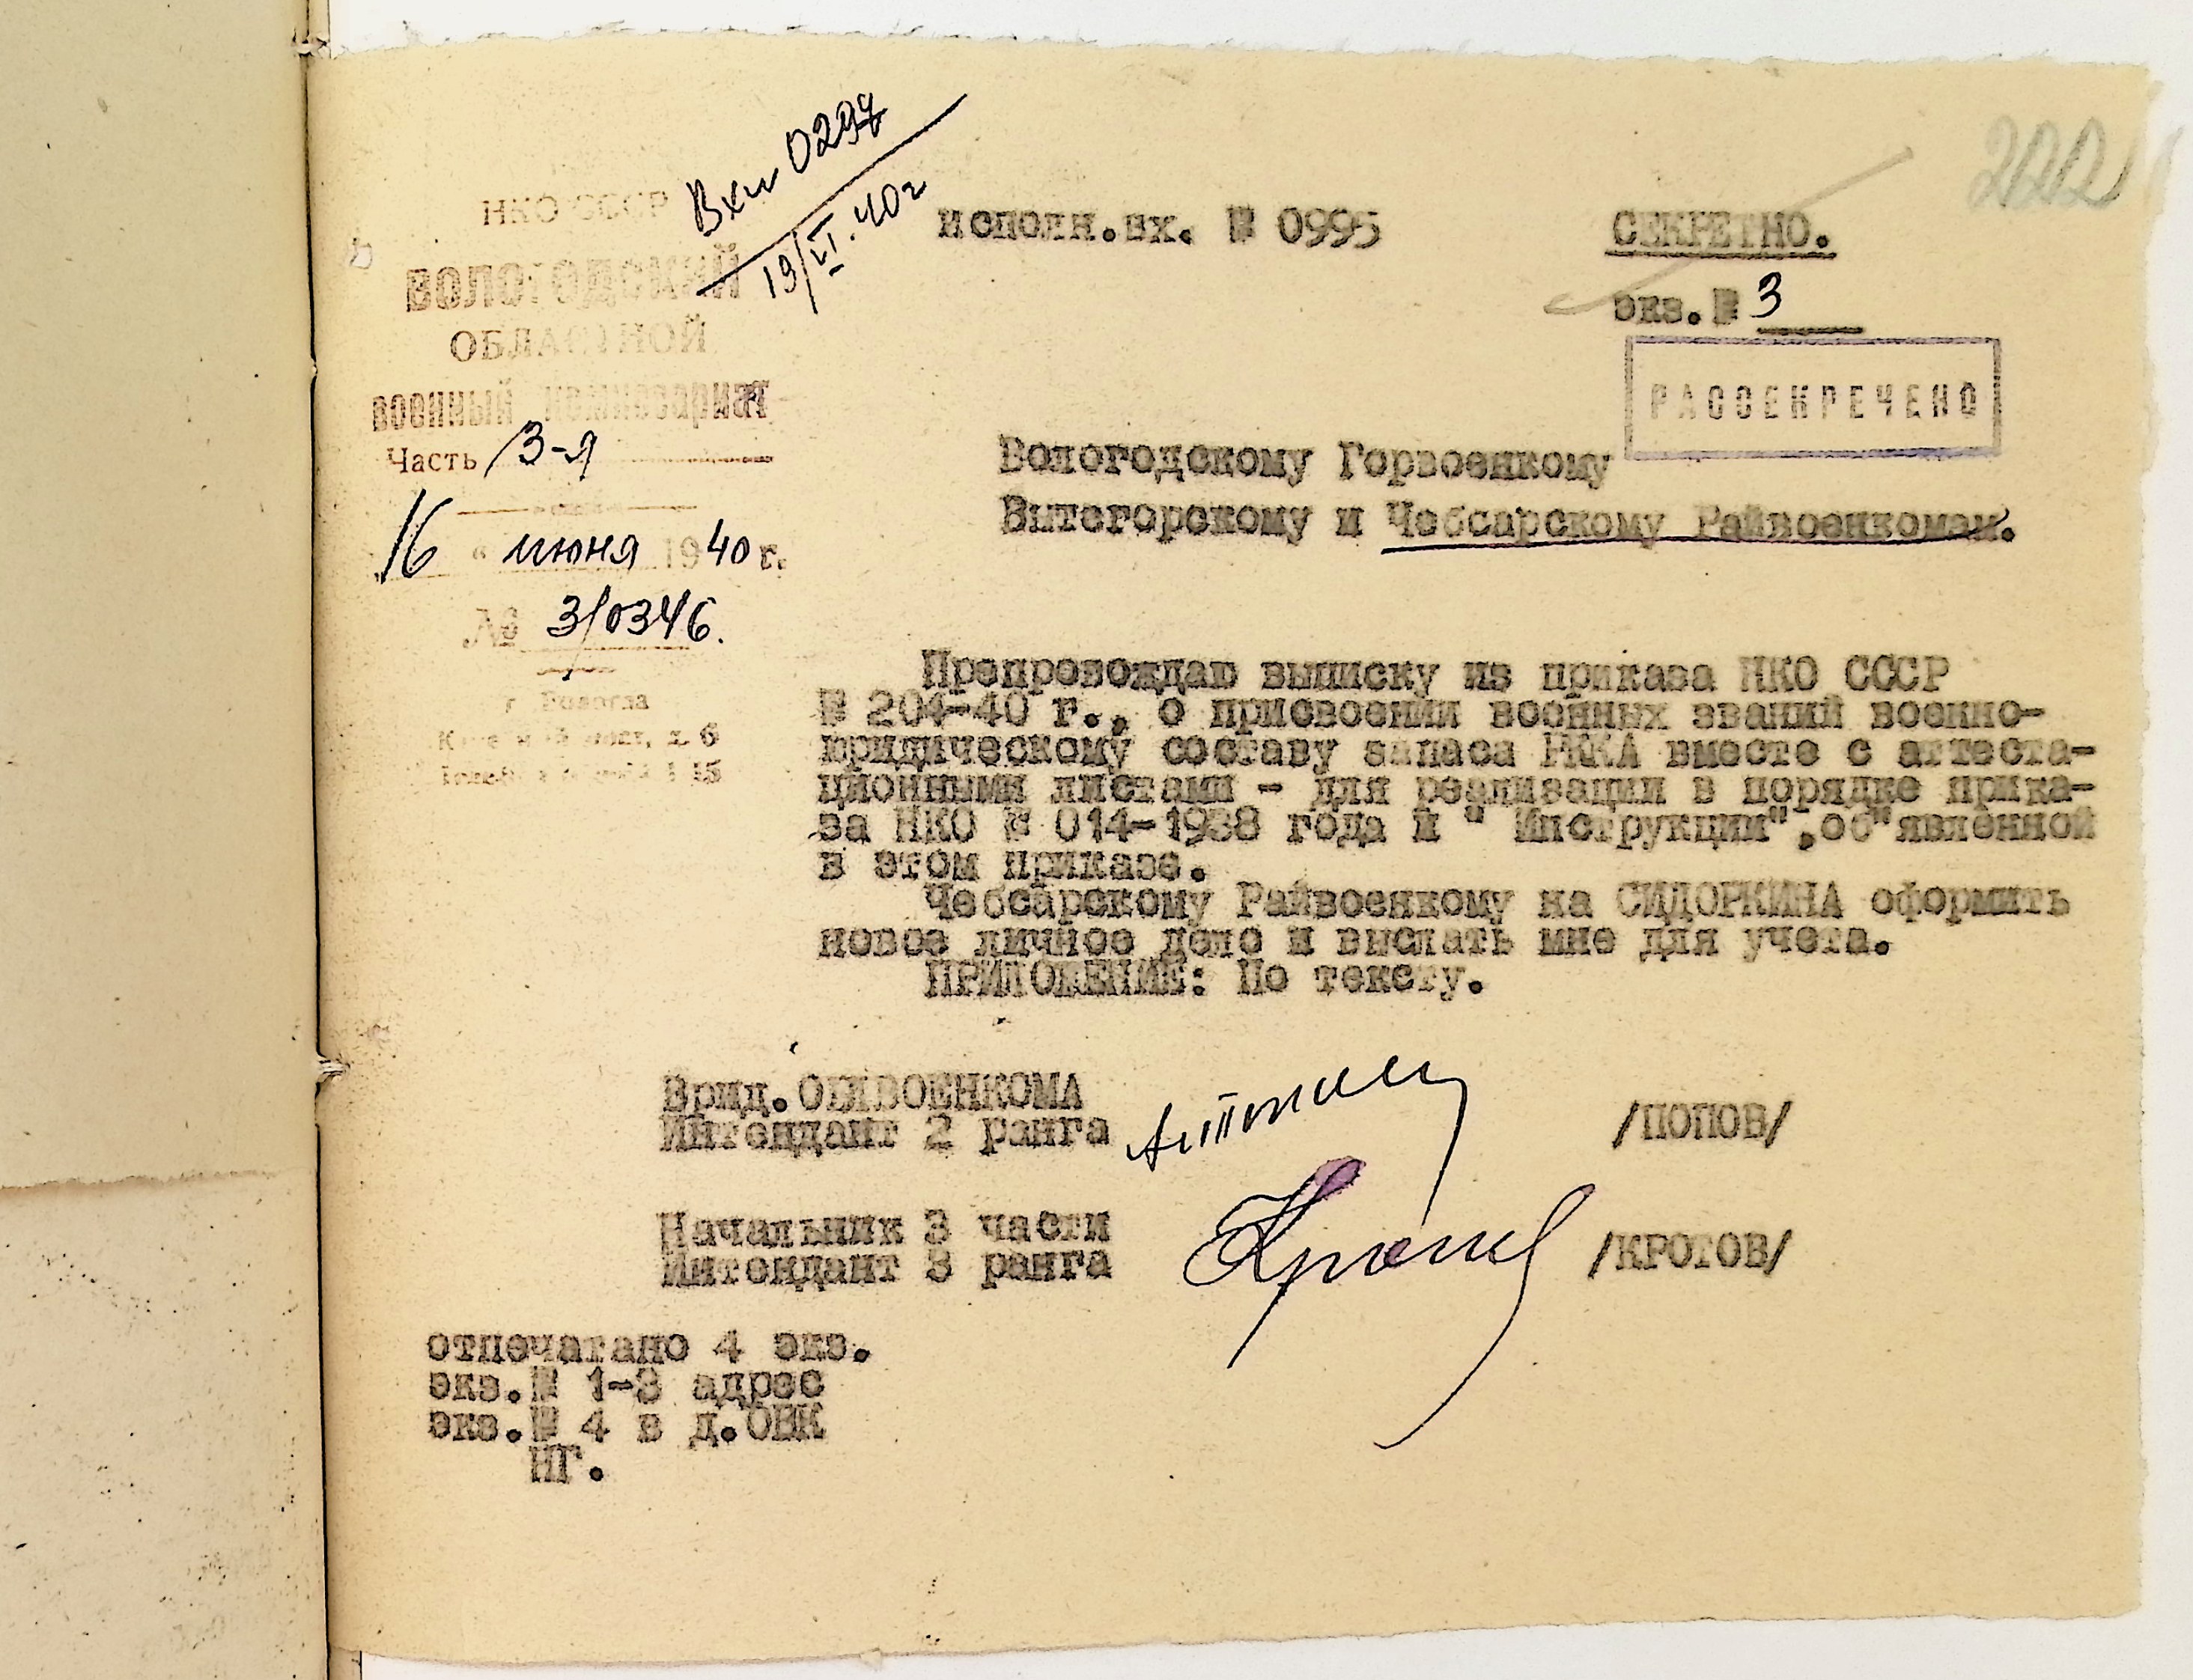 202
Вхи 0297
19/VI.40г
НКО СССР
ВОЛОГОДСКИЙ
ОБЛАСТНОЙ
военный комиссариат
Часть 3-я
16 " июня 1940 г.
№ 3/0346.
г. Вологда
мост, д. 6
исполн.вх. № 0995
СЕКРЕТНО.
экз.№ 3
РАССЕКРЕЧЕНО
Вологодскому Горвоенкому
Вытегорскому и Чебсарскому Райвоенкомам.
Препровождаю выписку из приказа НКО СССР
№ 204-40 г., о присвоении военных званий военно-
юридическому составу запаса РККА вместе с аттеста-
ционными листами - для реализации в порядке прика-
за НКО № 014-1938 года и " Инструкции",об"явленной
в этом приказе.
Чебсарскому Райвоенкому на СИДОРКИНА оформить
новое личное дело и выслать мне для учета.
ПРИЛОЖЕНИЕ: По тексту.
Врид.ОБЛВОЕНКОМА
Интендант 2 ранга /ПОПОВ/
Начальник 3 части
Интендант 3 ранга Кротов /КРОТОВ/
отпечатано 4 экз.
экз.№ 1-3 адрес
экз.№ 4 в д.ОВК
НГ.